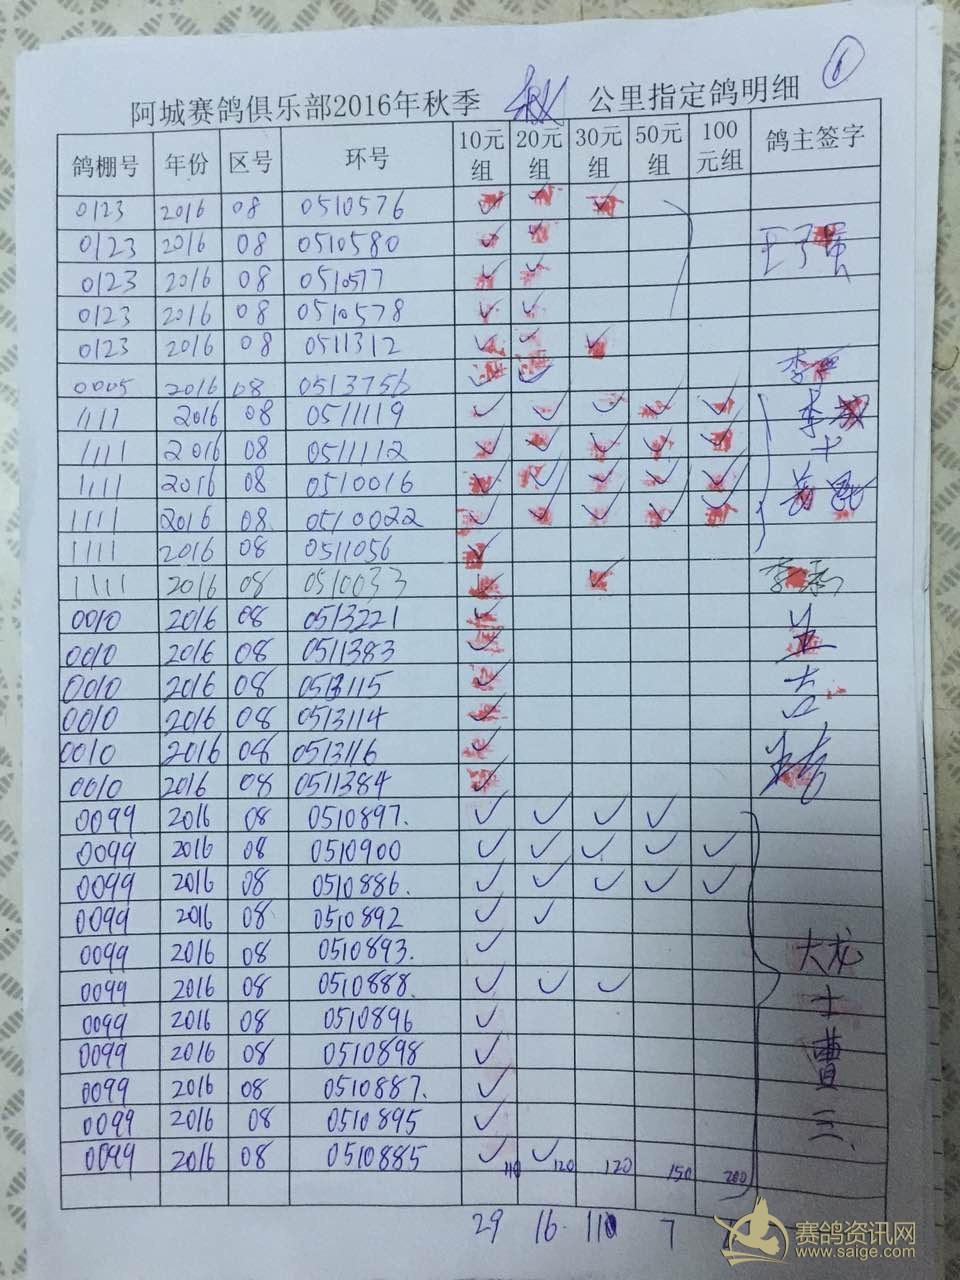 ①
阿城赛鸽俱乐部2016年秋季 公里指定鸽明细
鸽棚号 年份 区号 环号 10元组 20元组 30元组 50元组 100元组 鸽主签字
0123 2016 08 0510576 ✓ ✓ ✓
0123 2016 08 0510580 ✓ ✓
0123 2016 08 0510577 ✓ ✓
0123 2016 08 0510578 ✓ ✓
0123 2016 08 0511312 ✓ ✓ ✓
0005 2016 08 0513756 ✓ ✓
1111 2016 08 0511119 ✓ ✓ ✓ ✓ ✓
1111 2016 08 0511112 ✓ ✓ ✓ ✓ ✓
1111 2016 08 0510016 ✓ ✓ ✓ ✓ ✓
1111 2016 08 0510022 ✓ ✓ ✓ ✓ ✓
1111 2016 08 0511056 ✓
1111 2016 08 0510033 ✓ ✓
0010 2016 08 0513221 ✓
0010 2016 08 0511383 ✓
0010 2016 08 0513115 ✓
0010 2016 08 0513114 ✓
0010 2016 08 0513116 ✓
0010 2016 08 0511384 ✓
0099 2016 08 0510897. ✓ ✓ ✓ ✓
0099 2016 08 0510900 ✓ ✓ ✓ ✓ ✓
0099 2016 08 0510886. ✓ ✓ ✓ ✓ ✓
0099 2016 08 0510892 ✓ ✓
0099 2016 08 0510893. ✓ 大龙
0099 2016 08 0510888. ✓ ✓ ✓
0099 2016 08 0510896 ✓ 士
0099 2016 08 0510898 ✓ 曹
0099 2016 08 0510887. ✓
0099 2016 08 0510895 ✓ 三、
0099 2016 08 0510885 ✓ ✓
110 120 120 150 200
29 16 11 7
赛鸽资讯网
www.saige.com